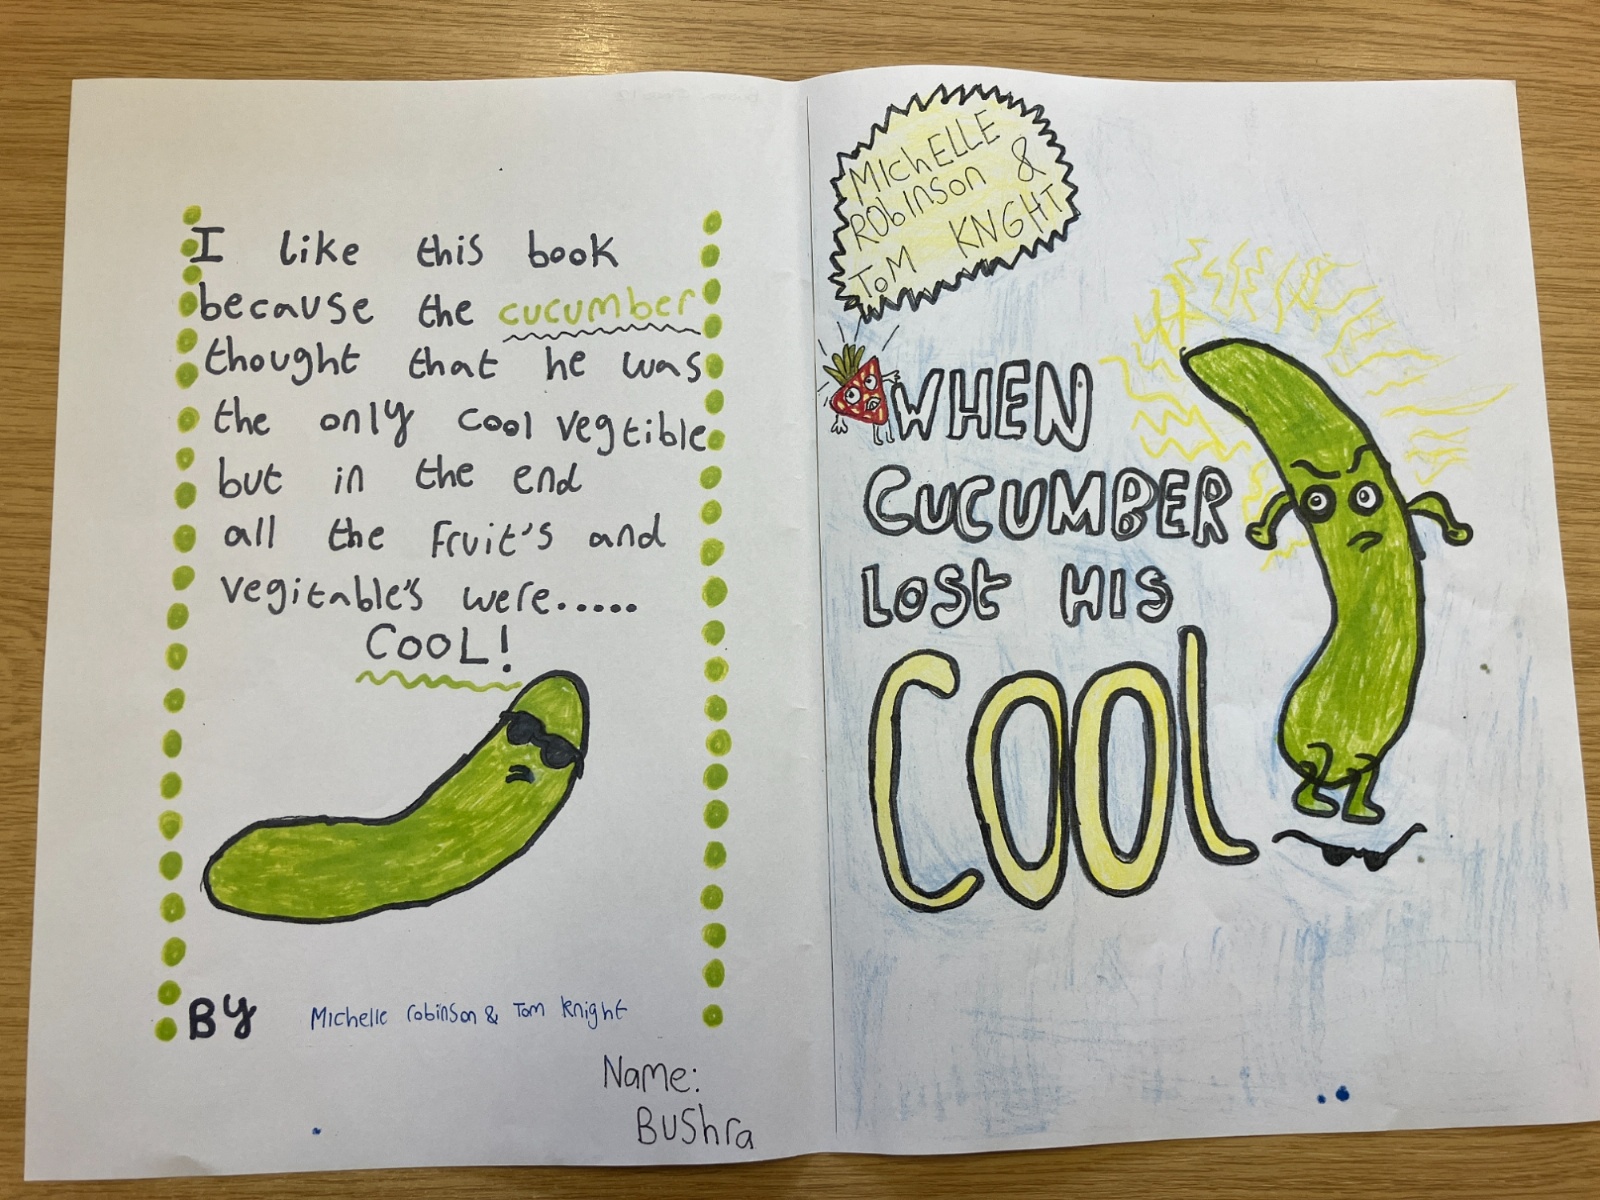 I like this book
because the cucumber
thought that he was
the only cool vegtible
but in the end
all the fruit's and
vegitable's were.....
COOL!
BY Michelle robinson & Tom knight
Name:
BUShra
MIchELLE
RObinSon &
ToM KNGHT
WHEN
CUCUMBER
LOSt HIS
COOL